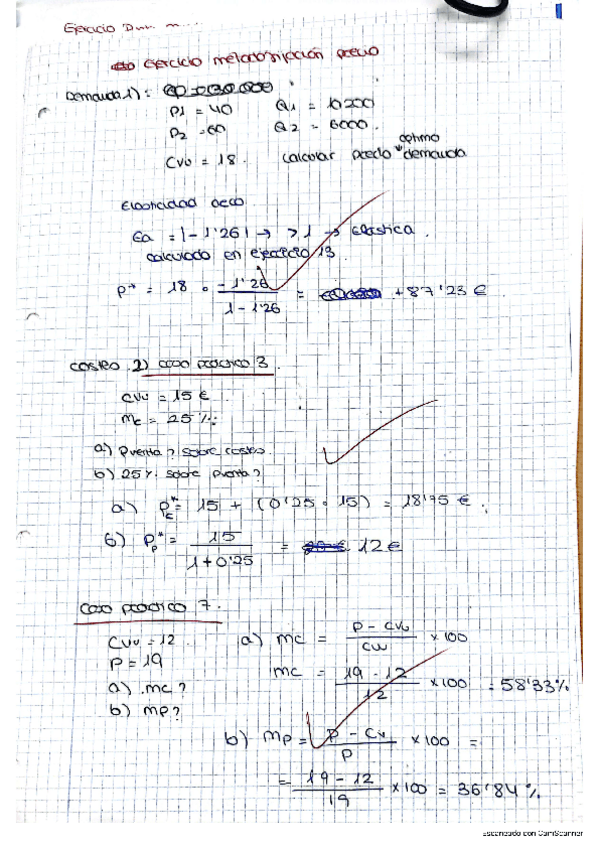 Ejercicio
ejercicio metodo fijación precio
Demanda 1):
P1 = 40 Q1 = 10200
P2 = 60 Q2 = 6000.
optimo
CVU = 18. calcular precio demanda
Elasticidad arco.
Ea = |-1'26| → > 1 → Elastica.
calculado en ejercicio 13.
P* = 18 · -1'26 / 1-1'26 = +87'23 €
costes 2) caso práctico 3
CVU = 15 €
mc = 25 %
a) Pventa? sobre costes.
b) 25% sobre Pventa?
a) P*c = 15 + (0'25 · 15) = 18'75 €.
b) P*p = 15 / 1+0'25 = 12 €
caso práctico 7.
CVU = 12 a) mc = P - CVu / CVu x 100
P = 19
mc = 19 - 12 / 12 x 100 = 58'33%
a) mc?
b) mp?
b) mp = P - Cvu / P x 100 =
= 19 - 12 / 19 x 100 = 36'84 %
Escaneado con CamScanner